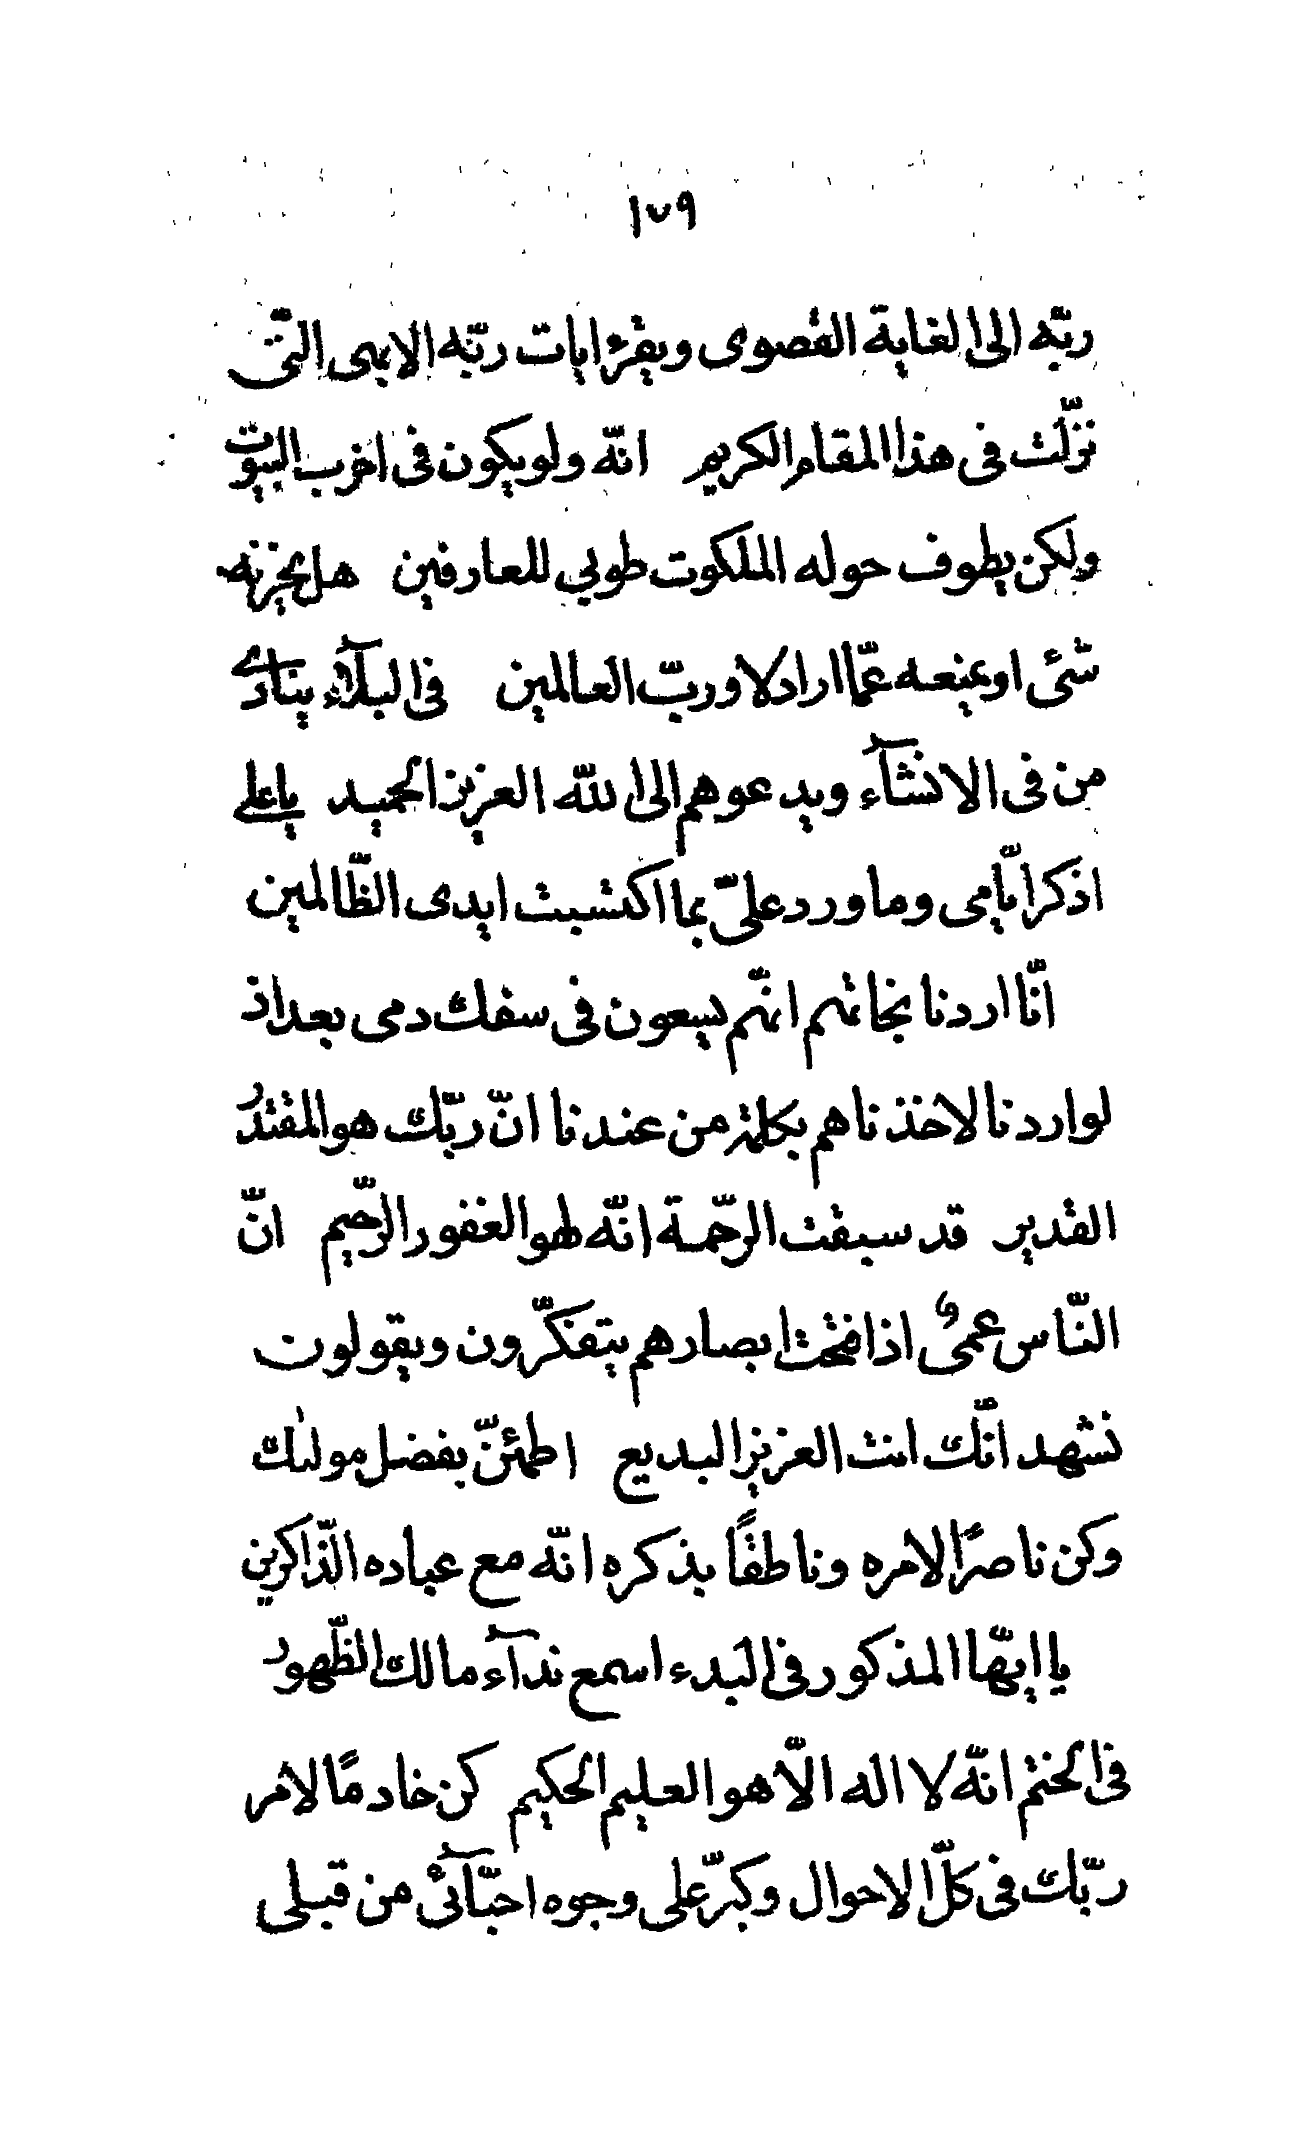 ١٧٩
ربّه الى الغاية القصوى ويقرء ايات ربّه الابهى الّتى
نزّلت فى هذا المقام الكريم انّه ولو يكون فى اخرب البيوت
ولكن يطوف حوله الملكوت طوبى للعارفين هل يحزنه
شئى او يمنعه عمّا اراد لا وربّ العالمين فى البلآء ينادى
من فى الانشآء ويدعوهم الى الله العزيز الحميد يا على
اذكر ايّامى وما ورد علىّ بما اكتسبت ايدى الظّالمين
انّا اردنا نجاتهم انّهم يسعون فى سفك دمى بعد اذ
لو اردنا لاخذناهم بكلمة من عندنا انّ ربّك هو المقتدر
القدير قد سبقت الرّحمة انّه لهو الغفور الرّحيم انّ
النّاس عمىٌ اذا فتحت ابصارهم يتفكّرون ويقولون
نشهد انّك انت العزيز البديع اطمئنّ بفضل موليٰك
وكن ناصرًا لامره وناطقًا بذكره انّه مع عباده الّذاكرين
يا ايّها المذكور فى البدء اسمع ندآء مالك الظّهور
فى الختم انّه لا اله الّا هو العليم الحكيم كن خادمًا لامر
ربّك فى كلّ الاحوال وكبّر على وجوه احبّآئى من قبلى